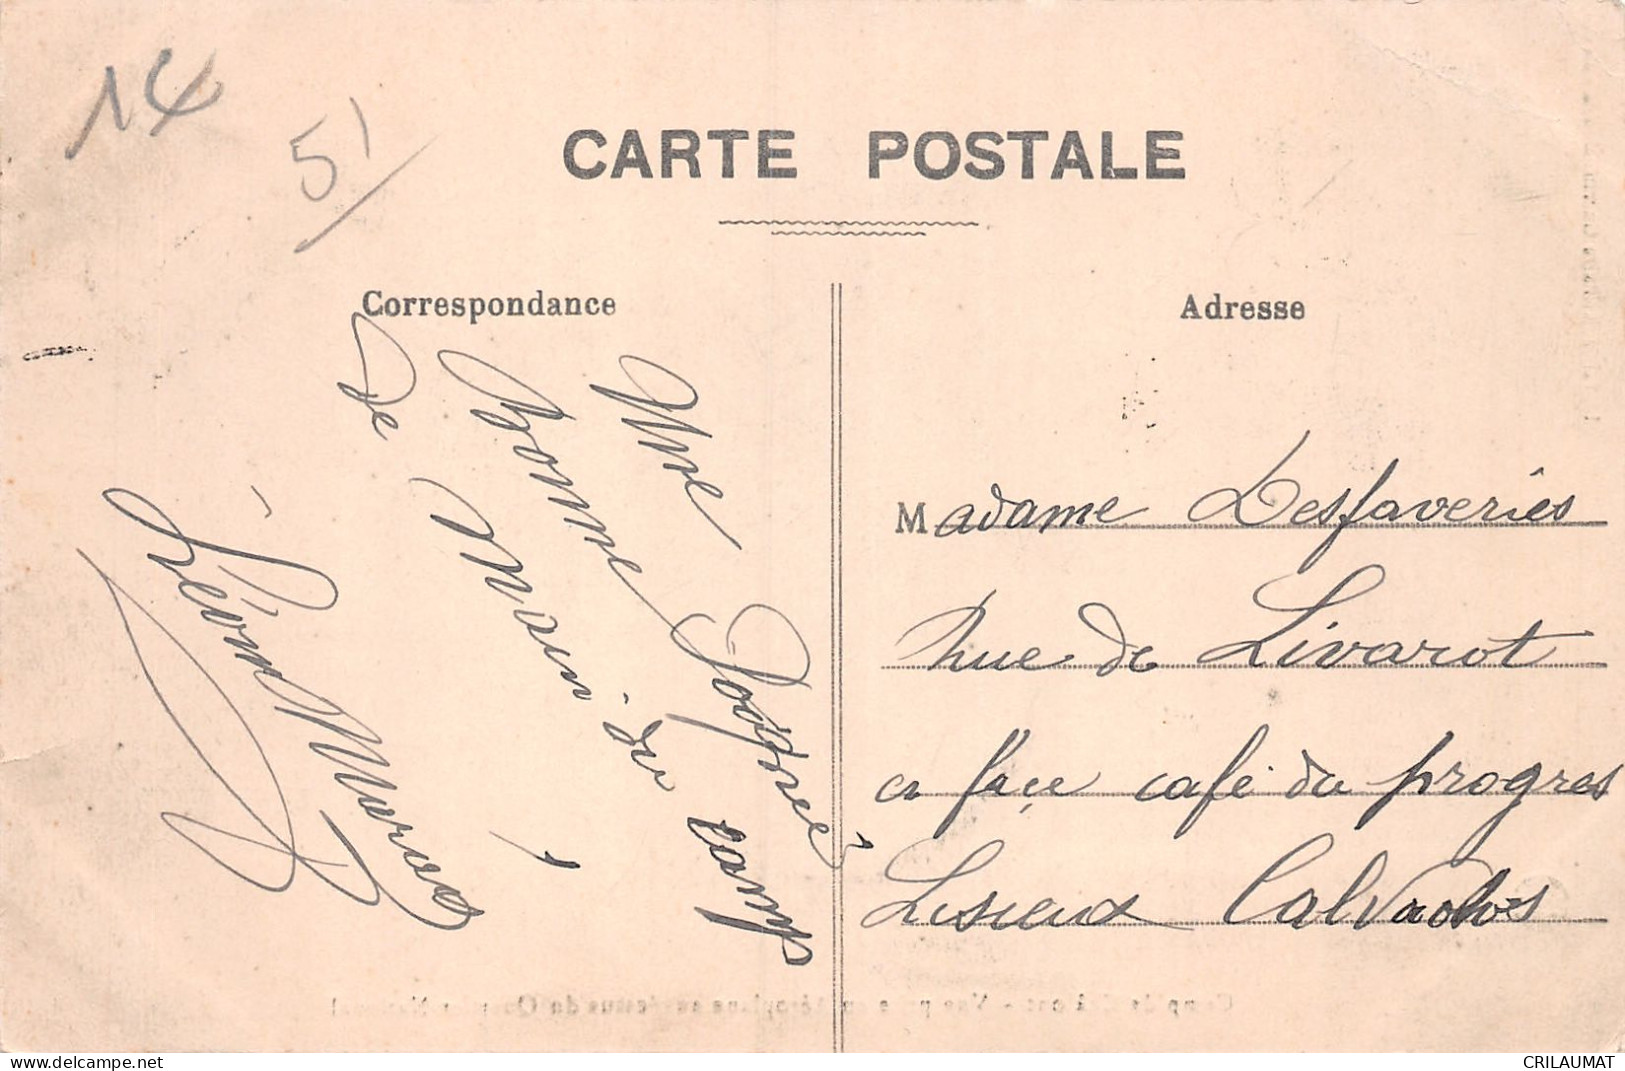 14
5
CARTE POSTALE
Correspondance
Adresse
Une
bonne Poignée
de Main du camp
Léon Marie
Madame Desfaveries
Rue de Livarot
a façe café du progres
Lisieux Calvados
Camp de Châlons - Vue prise en Aéroplane au-dessus du Quartier National
CRILAUMAT